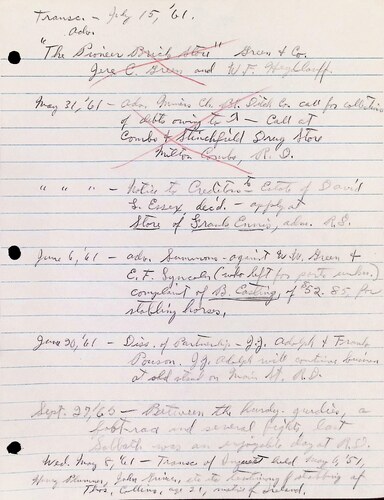 Transc. - July 15, '61.
Adv.
"The Pioneer Brick Store" Green & Co.
Jere C. Green and W. F.
May 31, '61 - adv. Main Ch. St. call for collection
of debts owing to - Call at
Combo & Stinchfield Drug Store
Milton Combo, R.D.
" " " - Notice to Creditors - Estate of David
S. Essex, dec'd. - apply at
Store of Frank Ennis, adm. R.S.
June 6, '61 - adv. Summons - against W. W. Green &
E. F. (who left for parts unkn.)
complaint of B. Easting, of $52.85 for
stabling horses.
June 20, '61 - Diss. of Partnership - J.J. Adolph & Frank
J.J. Adolph will continue business
at old stand on Main St. R.D.
Sept. 29, '60 - Between the hurdy-gurdies, a
foot-race and several fights, last
Sabbath was an enjoyable day at R.S.
Wed. May 8, '61 - Transc of Inquest held May 6, '51,
Henry John Grimes, as to the stabbing of
Thos. Collins, age 31, native of Ireland.